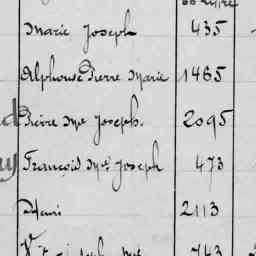 Marie Joseph 435
Alphonse Pierre Marie 1465
Pierre Me Joseph. 2095
François Me Joseph 473
Henri 2113
743